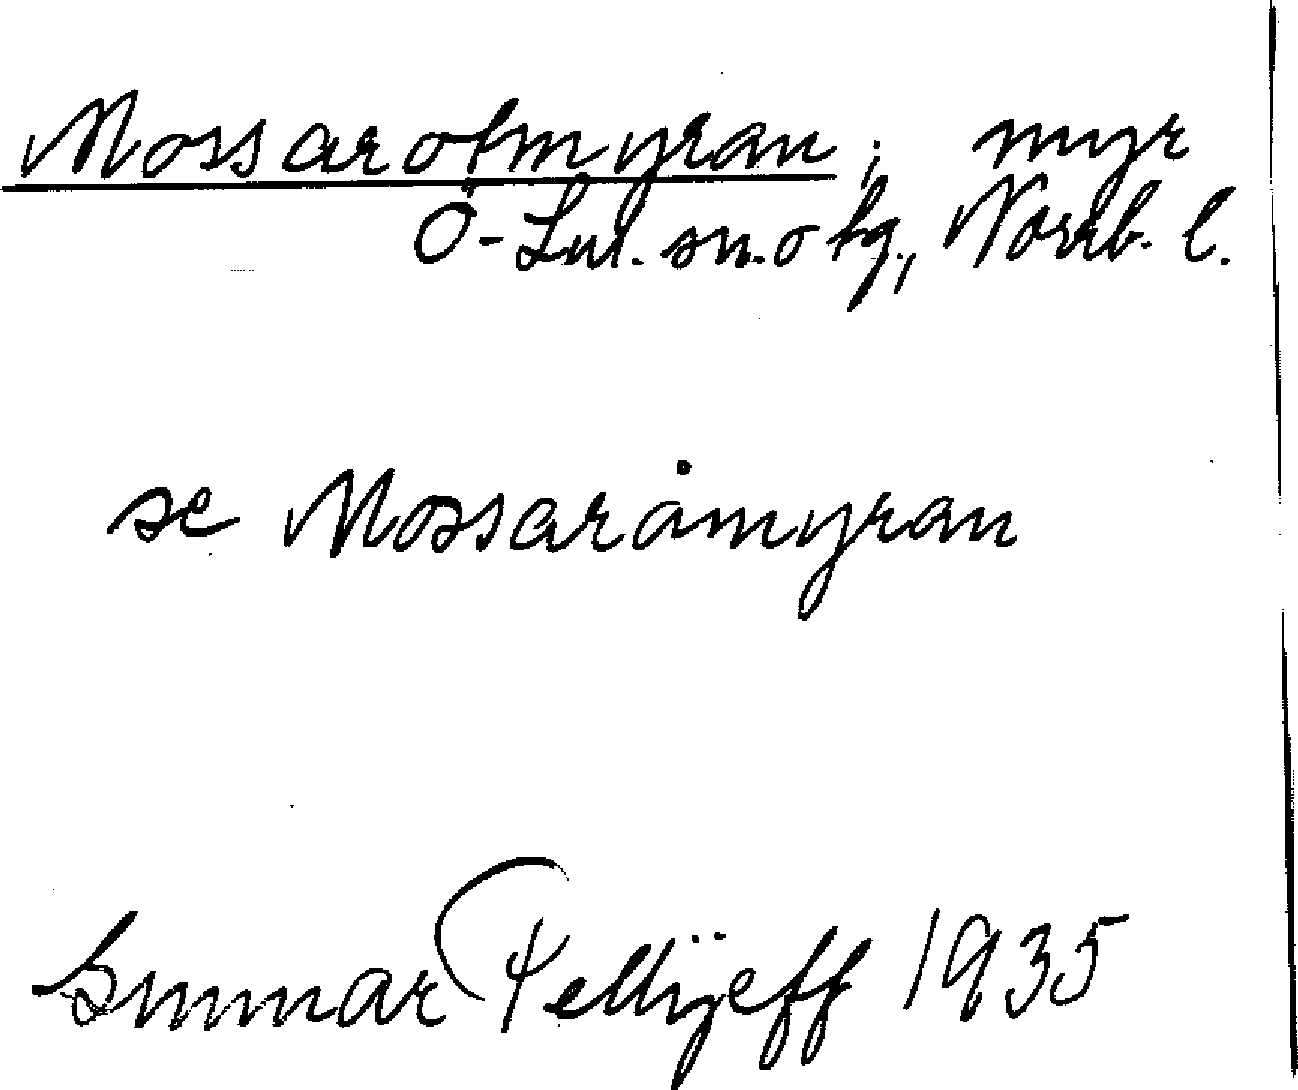 Mossarotmyran, myr
Ö-Lul. sn. o tg., Norrb. l.
se Mossaråmyran
Gunnar Pellijeff 1935